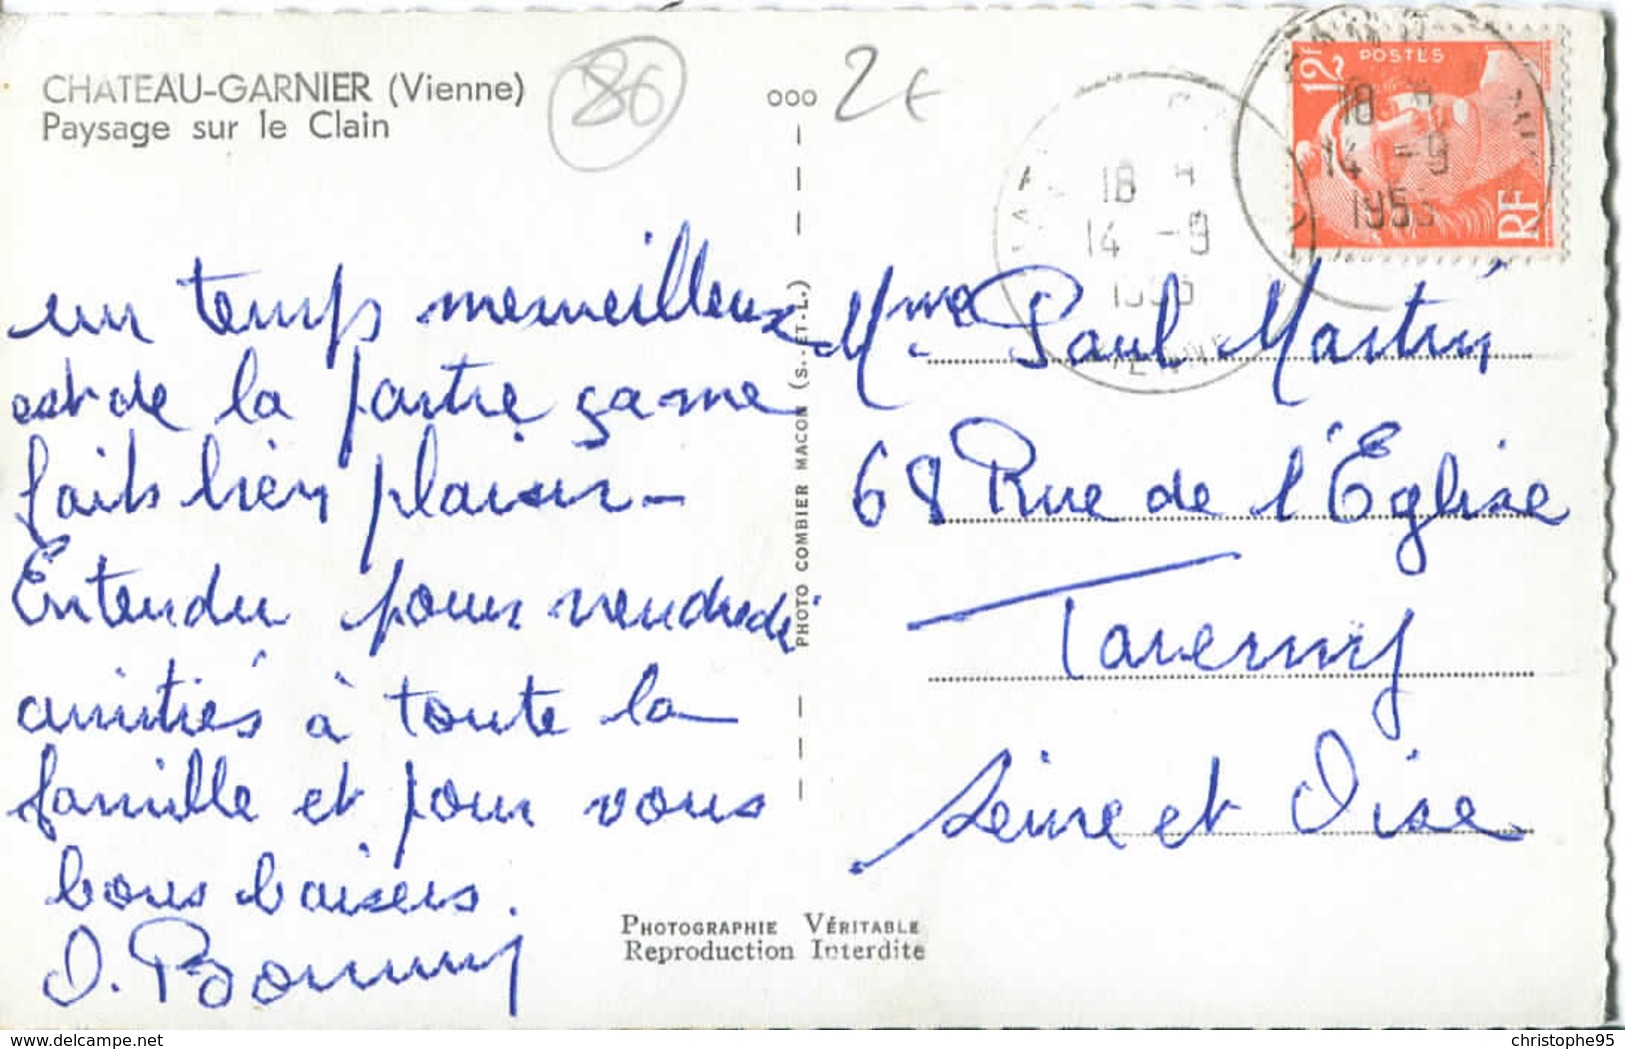 CHATEAU-GARNIER (Vienne)
Paysage sur le Clain
86
000
2€
POSTES
12f
RF
18 H
14 -9
1953
18 H
14 -9
VIENNE
un temps merveilleux
est de la partie ça me
fait bien plaisir -
Entendu pour vendredi
amitiés à toute la
famille et pour vous
bons baisers.
PHOTO COMBIER MACON (S.-ET-L.)
Mme Paul Martin
68 Rue de l'Eglise
Taverny
Seine et Oise
PHOTOGRAPHIE VÉRITABLE
Reproduction Interdite
www.delcampe.net
christophe95